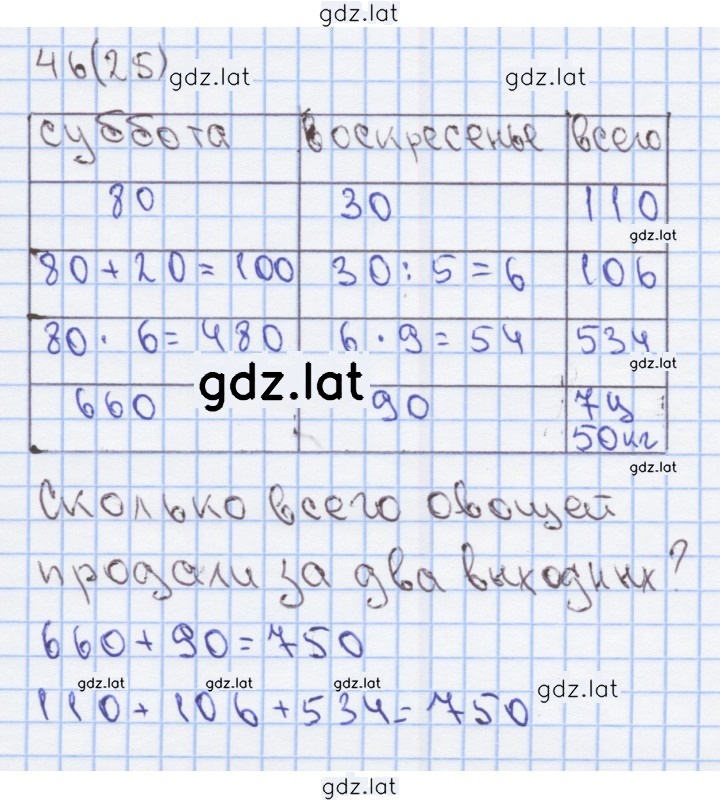 gdz.lat
46(25) gdz.lat gdz.lat
суббота воскресенье всего
80 30 110
gdz.lat
80 + 20 = 100 30 : 5 = 6 106
80 · 6 = 480 6 · 9 = 54 534
gdz.lat gdz.lat
660 90 7ц
50кг
gdz.lat
Сколько всего овощей
продали за два выходных?
660 + 90 = 750
gdz.lat gdz.lat gdz.lat gdz.lat
110 + 106 + 534 = 750
gdz.lat